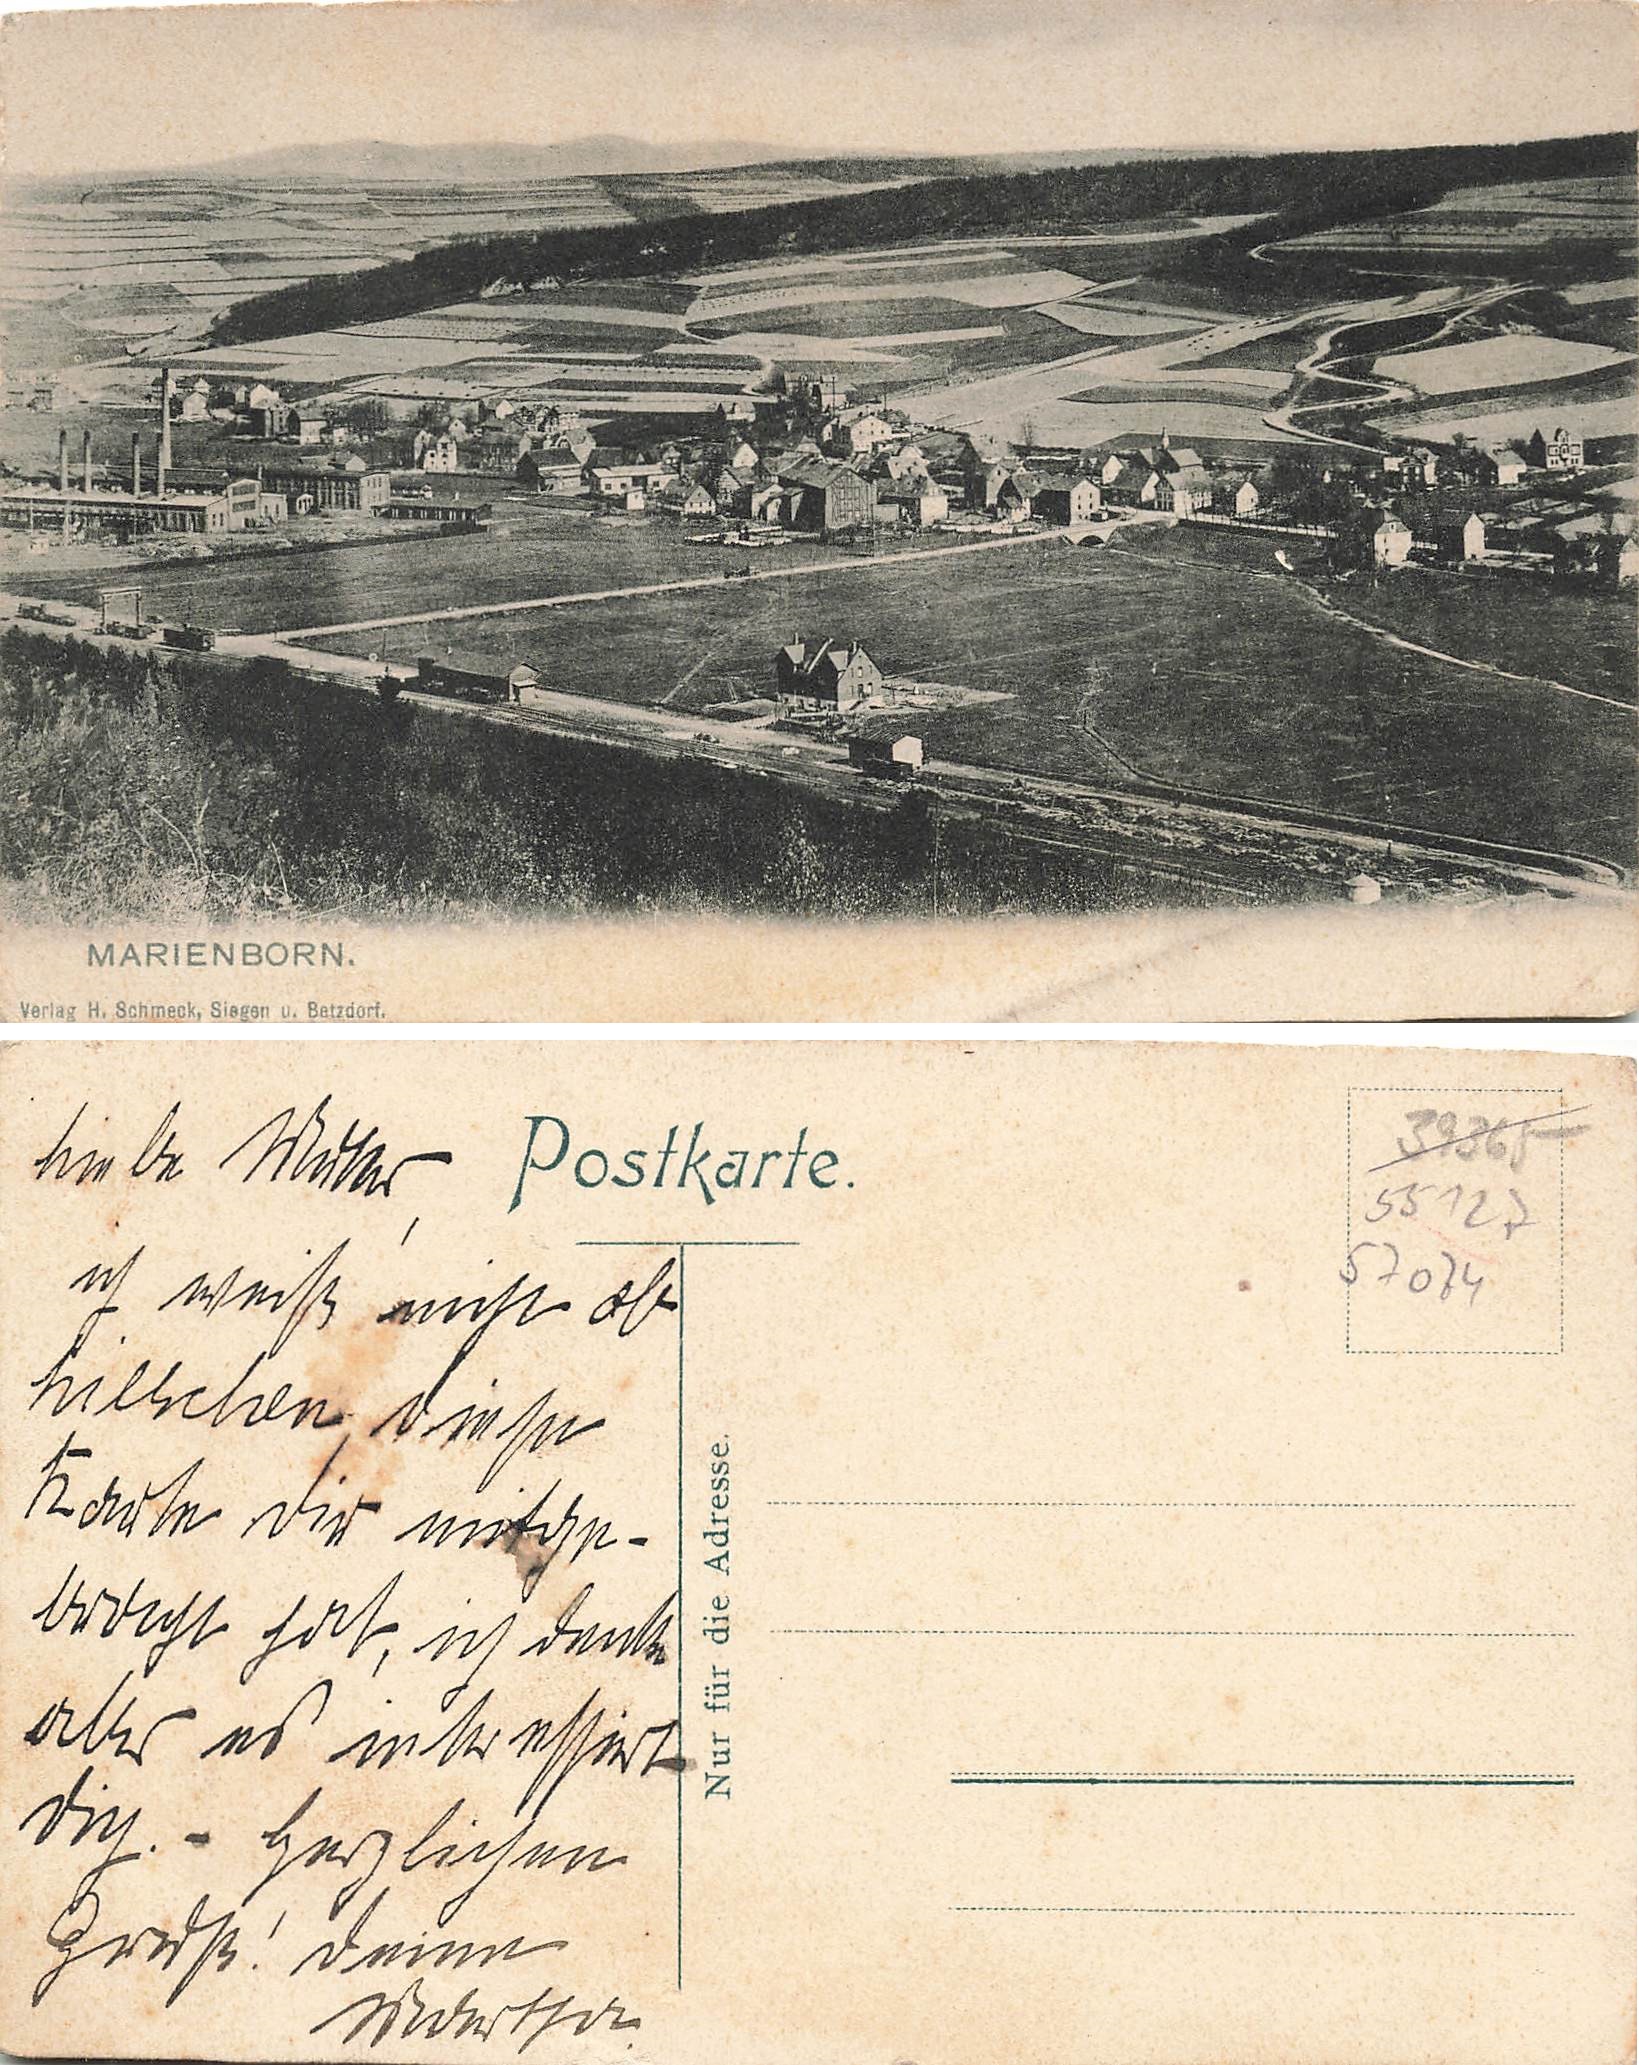 MARIENBORN.
Verlag H. Schmeck, Siegen u. Betzdorf.
Postkarte.
39365
55127
57074
Nur für die Adresse.
Liebe Mutter,
ich weiß nicht ob
Lieschen diese
Karte dir mitge-
bracht hat, ich denke
aber es interessiert
dich. - Herzlichen
Gruß! Deine
Martha.